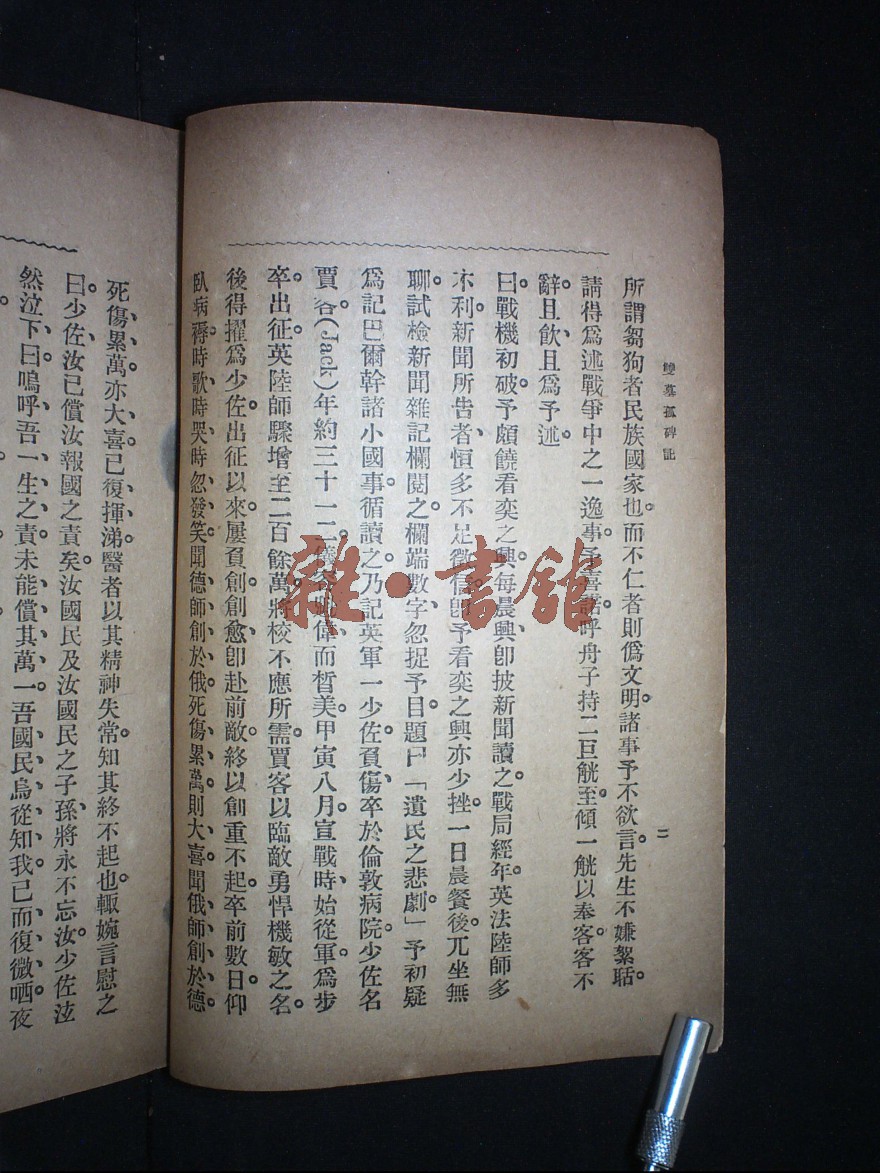 雙墓孤碑記
二
所謂芻狗者民族國家也而不仁者則僞文明諸事予不欲言先生不嫌絮聒
請得爲述戰爭中之一逸事予喜諾呼舟子持二巨觥至傾一觥以奉客客不
辭且飲且爲予述
曰戰機初破予頗饒看奕之興每晨興卽披新聞讀之戰局經年英法陸師多
不利新聞所告者恒多不足徵信卽予看奕之興亦少挫一日晨餐後兀坐無
聊試檢新聞雜記欄閱之欄端數字忽捉予目題曰「遺民之悲劇」予初疑
爲記巴爾幹諸小國事循讀之乃記英軍一少佐負傷卒於倫敦病院少佐名
賈客(Jack)年約三十一二儀容魁偉而皙美甲寅八月宣戰時始從軍爲步
卒出征英陸師驟增至二百餘萬將校不應所需賈客以臨敵勇悍機敏之名
後得擢爲少佐出征以來屢負創創愈卽赴前敵終以創重不起卒前數日仰
臥病褥時歌時哭時忽發笑聞德師創於俄死傷累萬則大喜聞俄師創於德
死傷累萬亦大喜已復揮涕醫者以其精神失常知其終不起也輒婉言慰之
曰少佐汝已償汝報國之責矣汝國民及汝國民之子孫將永不忘汝少佐泫
然泣下曰嗚呼吾一生之責未能償其萬一吾國民烏從知我已而復微哂夜
雜·書館